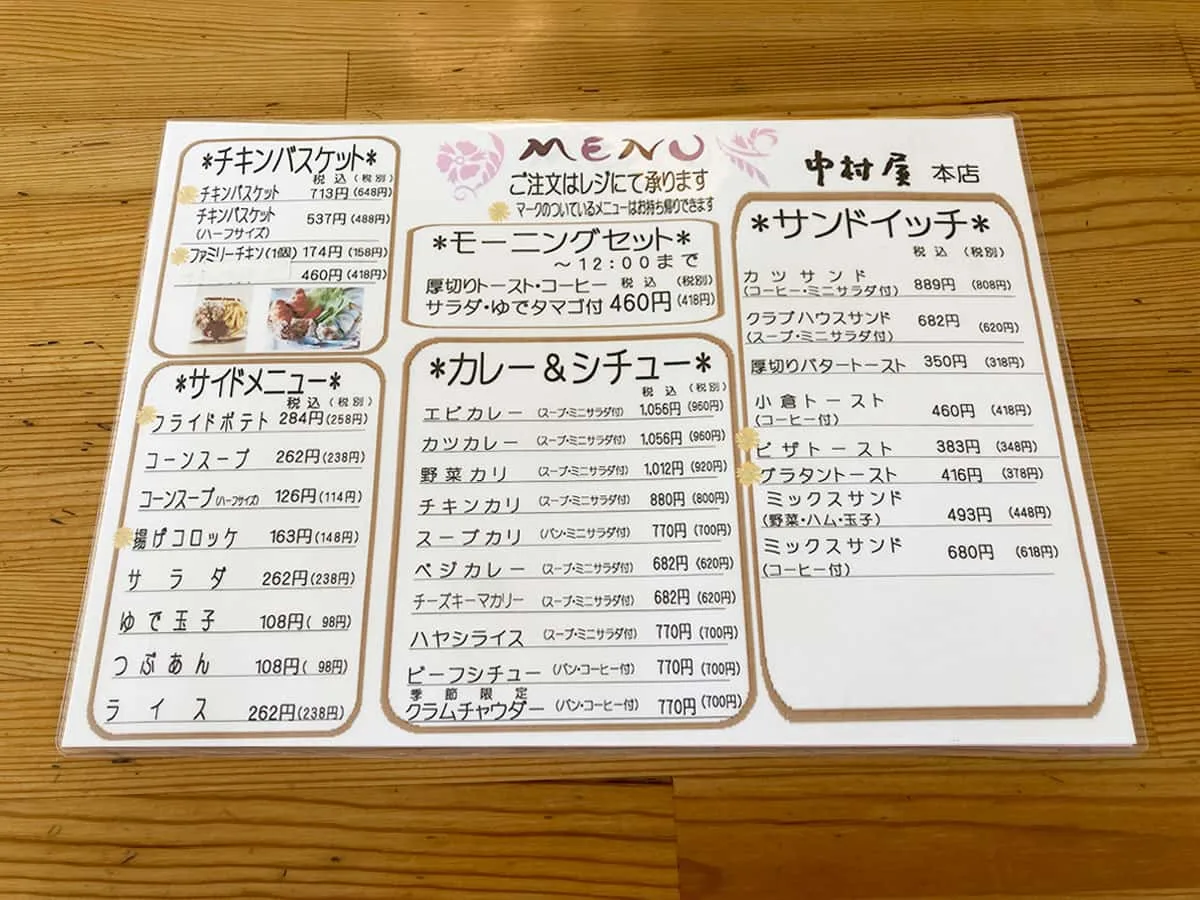 MENU
ご注文はレジにて承ります
マークのついているメニューはお持ち帰りできます
中村屋 本店
*チキンバスケット*
税込 (税別)
チキンバスケット 713円(648円)
チキンバスケット 537円(488円)
(ハーフサイズ)
ファミリーチキン(1個) 174円(158円)
460円(418円)
*サイドメニュー*
税込 (税別)
フライドポテト 284円(258円)
コーンスープ 262円(238円)
コーンスープ(ハーフサイズ) 126円(114円)
揚げコロッケ 163円(148円)
サラダ 262円(238円)
ゆで玉子 108円( 98円)
つぶあん 108円( 98円)
ライス 262円(238円)
*モーニングセット*
~12:00まで
厚切りトースト・コーヒー 税込 (税別)
サラダ・ゆでタマゴ付 460円(418円)
*カレー&シチュー*
税込 (税別)
エビカレー (スープ・ミニサラダ付) 1,056円(960円)
カツカレー (スープ・ミニサラダ付) 1,056円(960円)
野菜カリ (スープ・ミニサラダ付) 1,012円(920円)
チキンカリ (スープ・ミニサラダ付) 880円(800円)
スープカリ (パン・ミニサラダ付) 770円(700円)
ベジカレー (スープ・ミニサラダ付) 682円(620円)
チーズキーマカリー (スープ・ミニサラダ付) 682円(620円)
ハヤシライス (スープ・ミニサラダ付) 770円(700円)
ビーフシチュー (パン・コーヒー付) 770円(700円)
季節限定
クラムチャウダー (パン・コーヒー付) 770円(700円)
*サンドイッチ*
税込 (税別)
カツサンド 889円 (808円)
(コーヒー・ミニサラダ付)
クラブハウスサンド 682円 (620円)
(スープ・ミニサラダ付)
厚切りバタートースト 350円 (318円)
小倉トースト 460円 (418円)
(コーヒー付)
ピザトースト 383円 (348円)
グラタントースト 416円 (378円)
ミックスサンド 493円 (448円)
(野菜・ハム・玉子)
ミックスサンド 680円 (618円)
(コーヒー付)